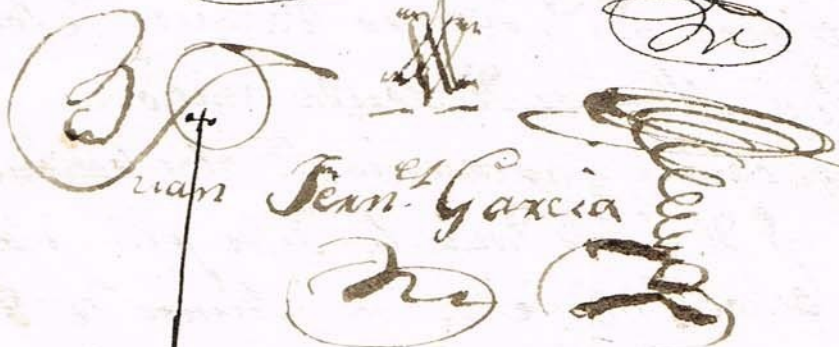 Juan Fern.ez Garcia